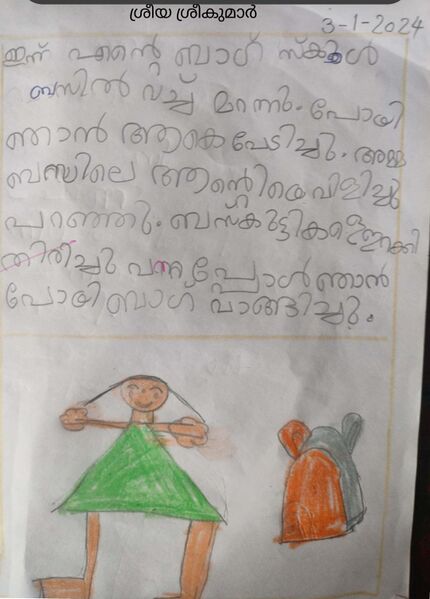 ശ്രീയ ശ്രീകുമാർ
3-1-2024
ഇന്ന് എന്റെ ബാഗ് സ്കൂൾ
ബസിൽ വച്ച് മറന്നു. പോയി
ഞാൻ ആകെ പേടിച്ചു. അമ്മ
ബസ്സിലെ ആന്റിയെ വിളിച്ചു
പറഞ്ഞു. ബസ് കുട്ടികളെ ഇറക്കി
തിരിച്ചു വന്നപ്പോൾ ഞാൻ
പോയി ബാഗ് വാങ്ങിച്ചു.